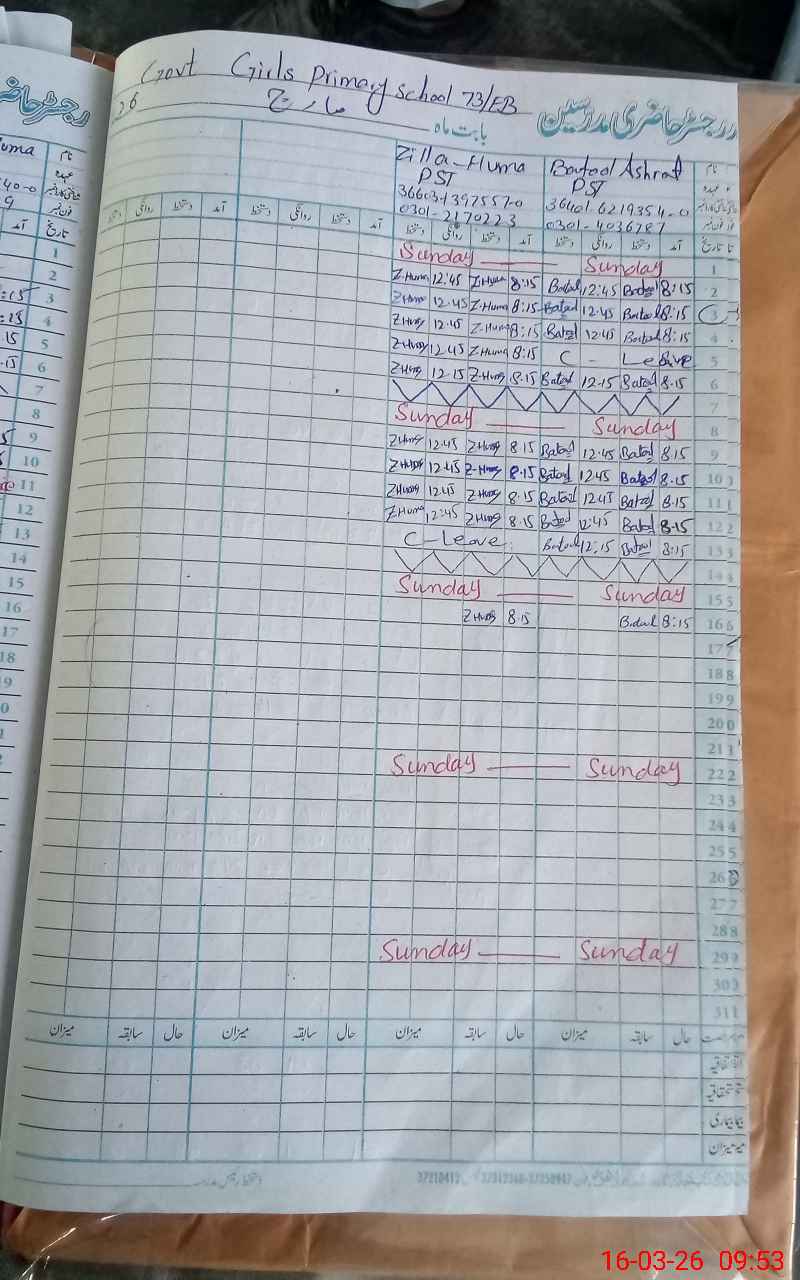 Govt Girls Primary School 73/EB
رجسٹر حاضری مدرسین
بابت ماہ مارچ 26
نام Batool Ashraf Zilla-Huma
عہدہ PST PST
36401-6219354-0 36603-1397557-0
0301-4036787 0301-2170223
تاریخ آمد دستخط روانگی دستخط آمد دستخط روانگی دستخط آمد دستخط روانگی دستخط آمد دستخط روانگی دستخط
Sunday Sunday 1
Z-Huma 12:45 Z-Huma 8:15 Batool 12:45 Batool 8:15 2
Z-Huma 12.45 Z-Huma 8:15 Batool 12.45 Batool 8:15 3
Z-Huma 12.45 Z-Huma 8:15 Batool 12.45 Batool 8:15 4
Z-Huma 12.45 Z-Huma 8:15 C - Leave 5
Z-Huma 12.15 Z-Huma 8.15 Batool 12.15 Batool 8.15 6
7
Sunday Sunday 8
Z-Huma 12.45 Z-Huma 8.15 Batool 12.45 Batool 8.15 9
Z-Huma 12.45 Z-Huma 8.15 Batool 12.45 Batool 8.15 10
Z-Huma 12.45 Z-Huma 8.15 Batool 12.45 Batool 8.15 11
Z-Huma 12:45 Z-Huma 8.15 Batool 12:45 Batool 8.15 12
C-Leave Batool 12:15 Batool 8:15 13
14
Sunday Sunday 15
Z-Huma 8.15 Batool 8:15 16
17
18
19
20
21
Sunday Sunday 22
23
24
25
26
27
28
Sunday Sunday 29
30
31
حال سابقہ میزان حال سابقہ میزان حال سابقہ میزان حال سابقہ میزان
اتفاقیہ
استحقاقیہ
بیماری
میزان
دستخط رئیس مدرسہ
16-03-26 09:53